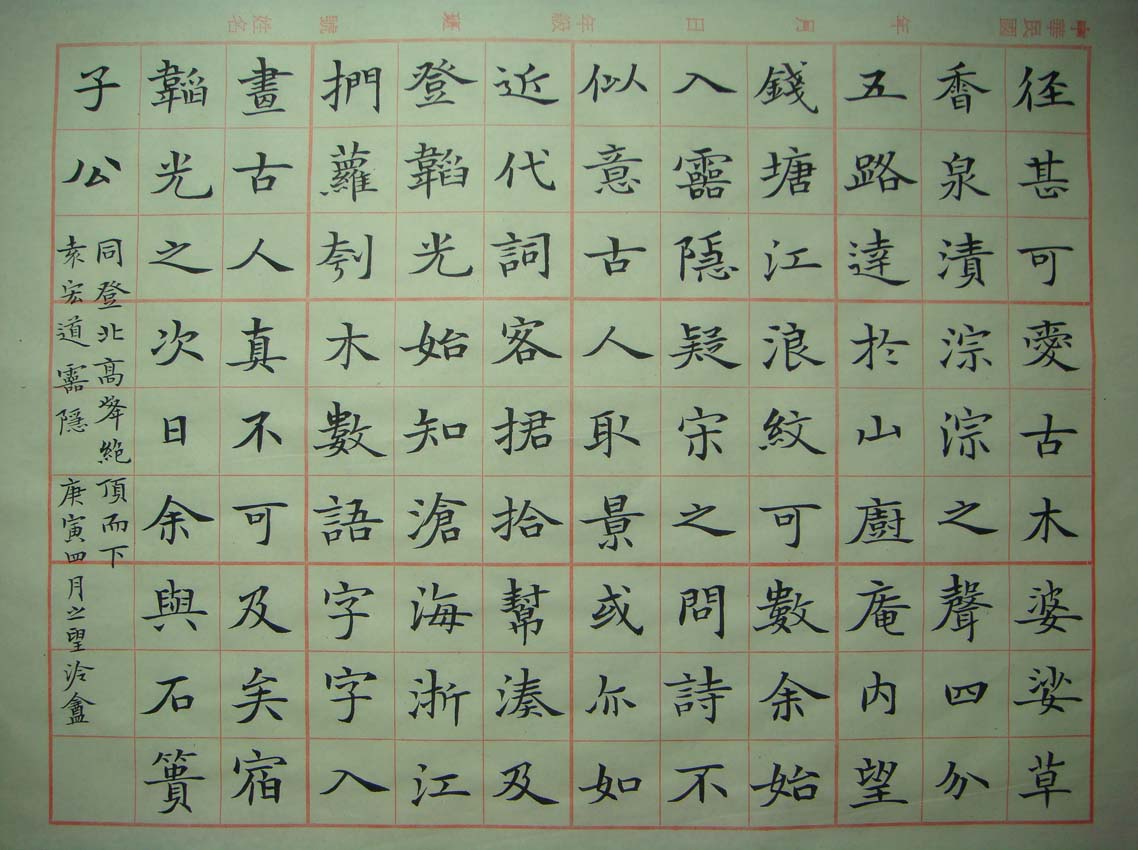 中華民國 年 月 日 年級 班 號 姓名
徑甚可愛古木婆娑草
香泉漬淙淙之聲四分
五路達於山廚庵內望
錢塘江浪紋可數余始
入靈隱疑宋之問詩不
似意古人取景或亦如
近代詞客捃拾幫湊及
登韜光始知滄海浙江
捫蘿刳木數語字字入
畫古人真不可及矣宿
韜光之次日余與石簣
子公
同登北高峯絕頂而下
袁宏道靈隱 庚寅四月之望泠盦